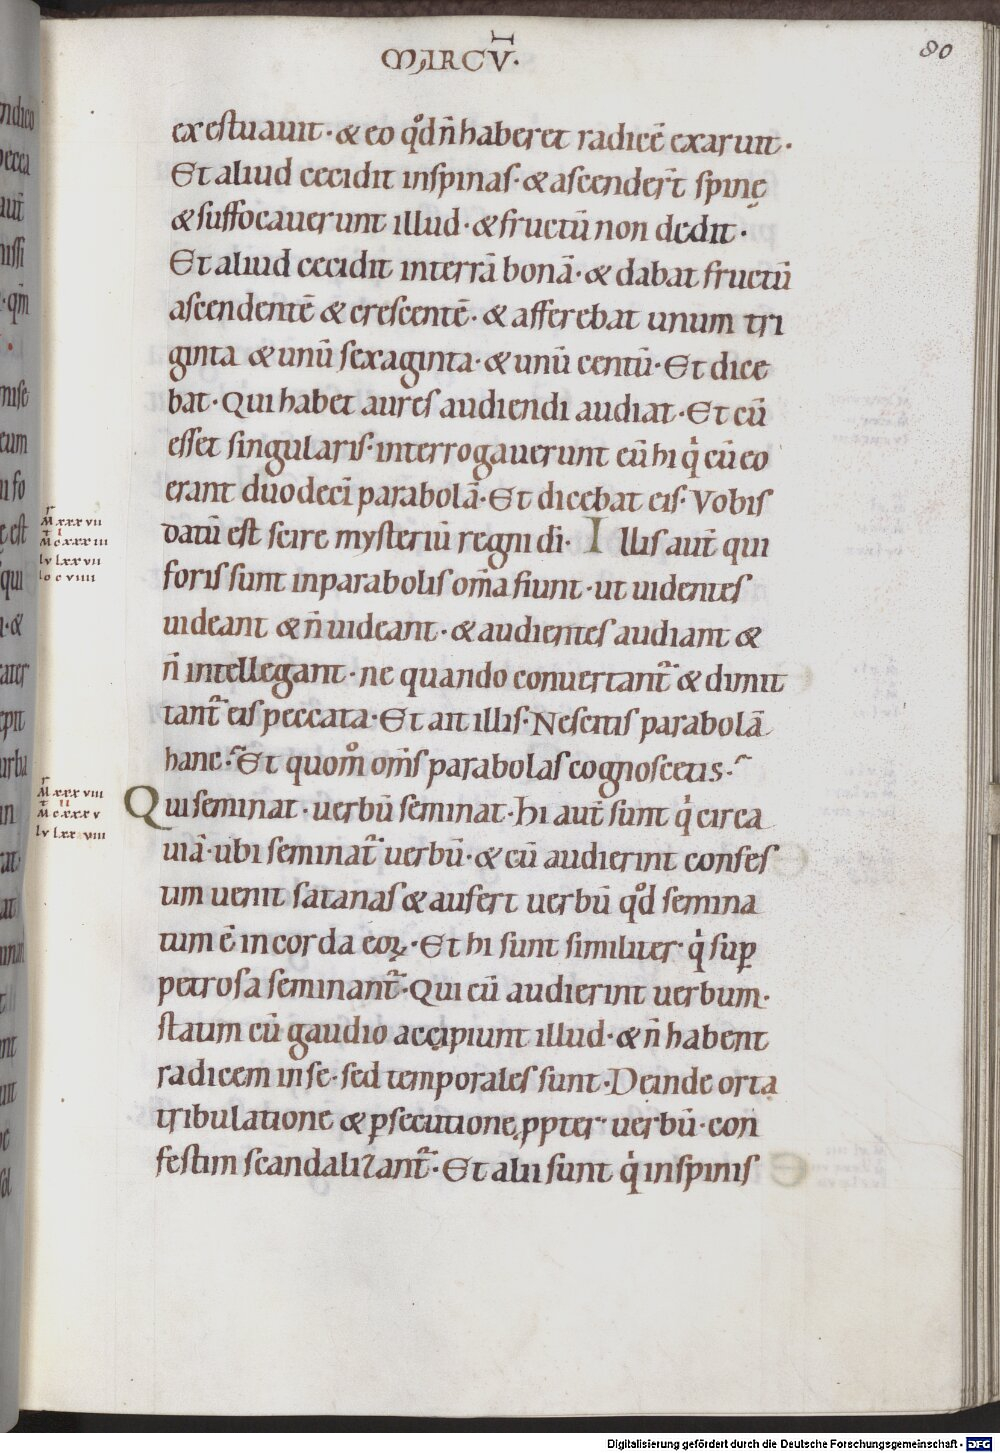 MARCV̄·
80
exestuauit· & eo qͦd n̄ haberet radicē exaruit·
Et aliud cecidit inspinas· & ascendert̄ spinę
& suffocauerunt illud· & fructū non dedit·
Et aliud cecidit interrā bonā· & dabat fructū
ascendentē & crescentē· & afferebat unum tri
ginta & unū sexaginta· & unū centū· Et dice
bat· Qui habet aures audiendi audiat· Et cū
esset singularis· interrogauerunt eū hi qͥ cū eo
erant duodecī parabolā· Et dicebat eis· Vobis
datū est scire mysteriū regni dī· Illis aut̄ qui
foris sunt inparabolis om̄a fiunt· ut uidentes
uideant & n̄ uideant· & audientes audiant &
n̄ intellegant· ne quando conuertant̄ & dimit
tant̄ eis peccata· Et ait illis· Nescitis parabolā
hanc· Et quom̊ om̄s parabolas cognoscetis·
Qui seminat· uerbū seminat· hi aut̄ sunt qͥ circa
uiā· ubi seminat̄ uerbū· & cū audierint confes
tim uenit satanas & aufert uerbū qͦd semina
tum ē in corda eoꝝ· Et hi sunt similiter· qͥ suꝑ
petrosa seminant̄· Qui cū audierint uerbum·
statim cū gaudio accipiunt illud· & n̄ habent
radicem inse· sed temporales sunt· Deinde orta
tribulatione & ꝑsecutione ꝓpter uerbū· con
festim scandalizant̄· Et alii sunt qͥ inspinis
M xxxvii
M cxxxiii
lv lxxvii
Io cviiii
M xxxviii
M cxxxv
lv lxxviii
Digitalisierung gefördert durch die Deutsche Forschungsgemeinschaft - DFG